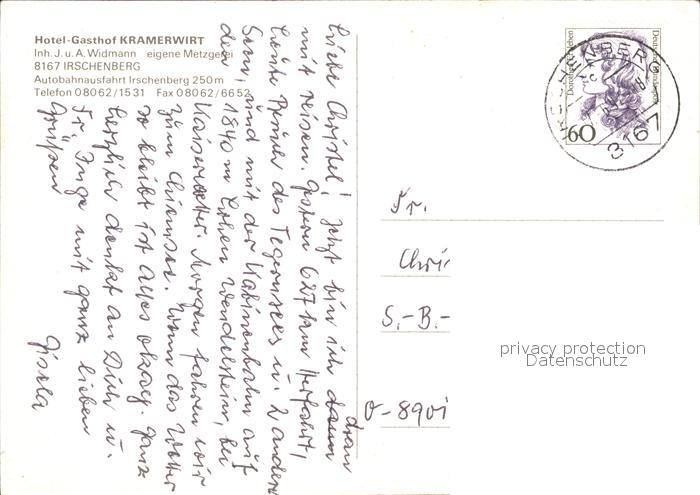 Hotel-Gasthof KRAMERWIRT
Inh. J. u. A. Widmann eigene Metzgerei
8167 IRSCHENBERG
Autobahnausfahrt Irschenberg 250 m
Telefon 08062/1531 Fax 08062/6652
Liebe Christel! Jetzt bin ich dran
mit reisen. Gestern 627 km Herfahrt,
heute Besuch des Tegernsees u. 2 andere
Seen, und mit der Kabinenbahn auf
den 1840 m hohen Wendelstein, bei
Kaiserwetter. Morgen fahren wir
zum Chiemsee. Wenn das Wetter
so bleibt ist alles okay. Ganz
herzlich denkt an Dich u.
Fr. Inge mit ganz lieben
Grüßen
Gisela
Dorothea Erxleben
Deutsche Bundespost
60
8167
Fr.
Chri
S.-B.-
O-8901
privacy protection
Datenschutz